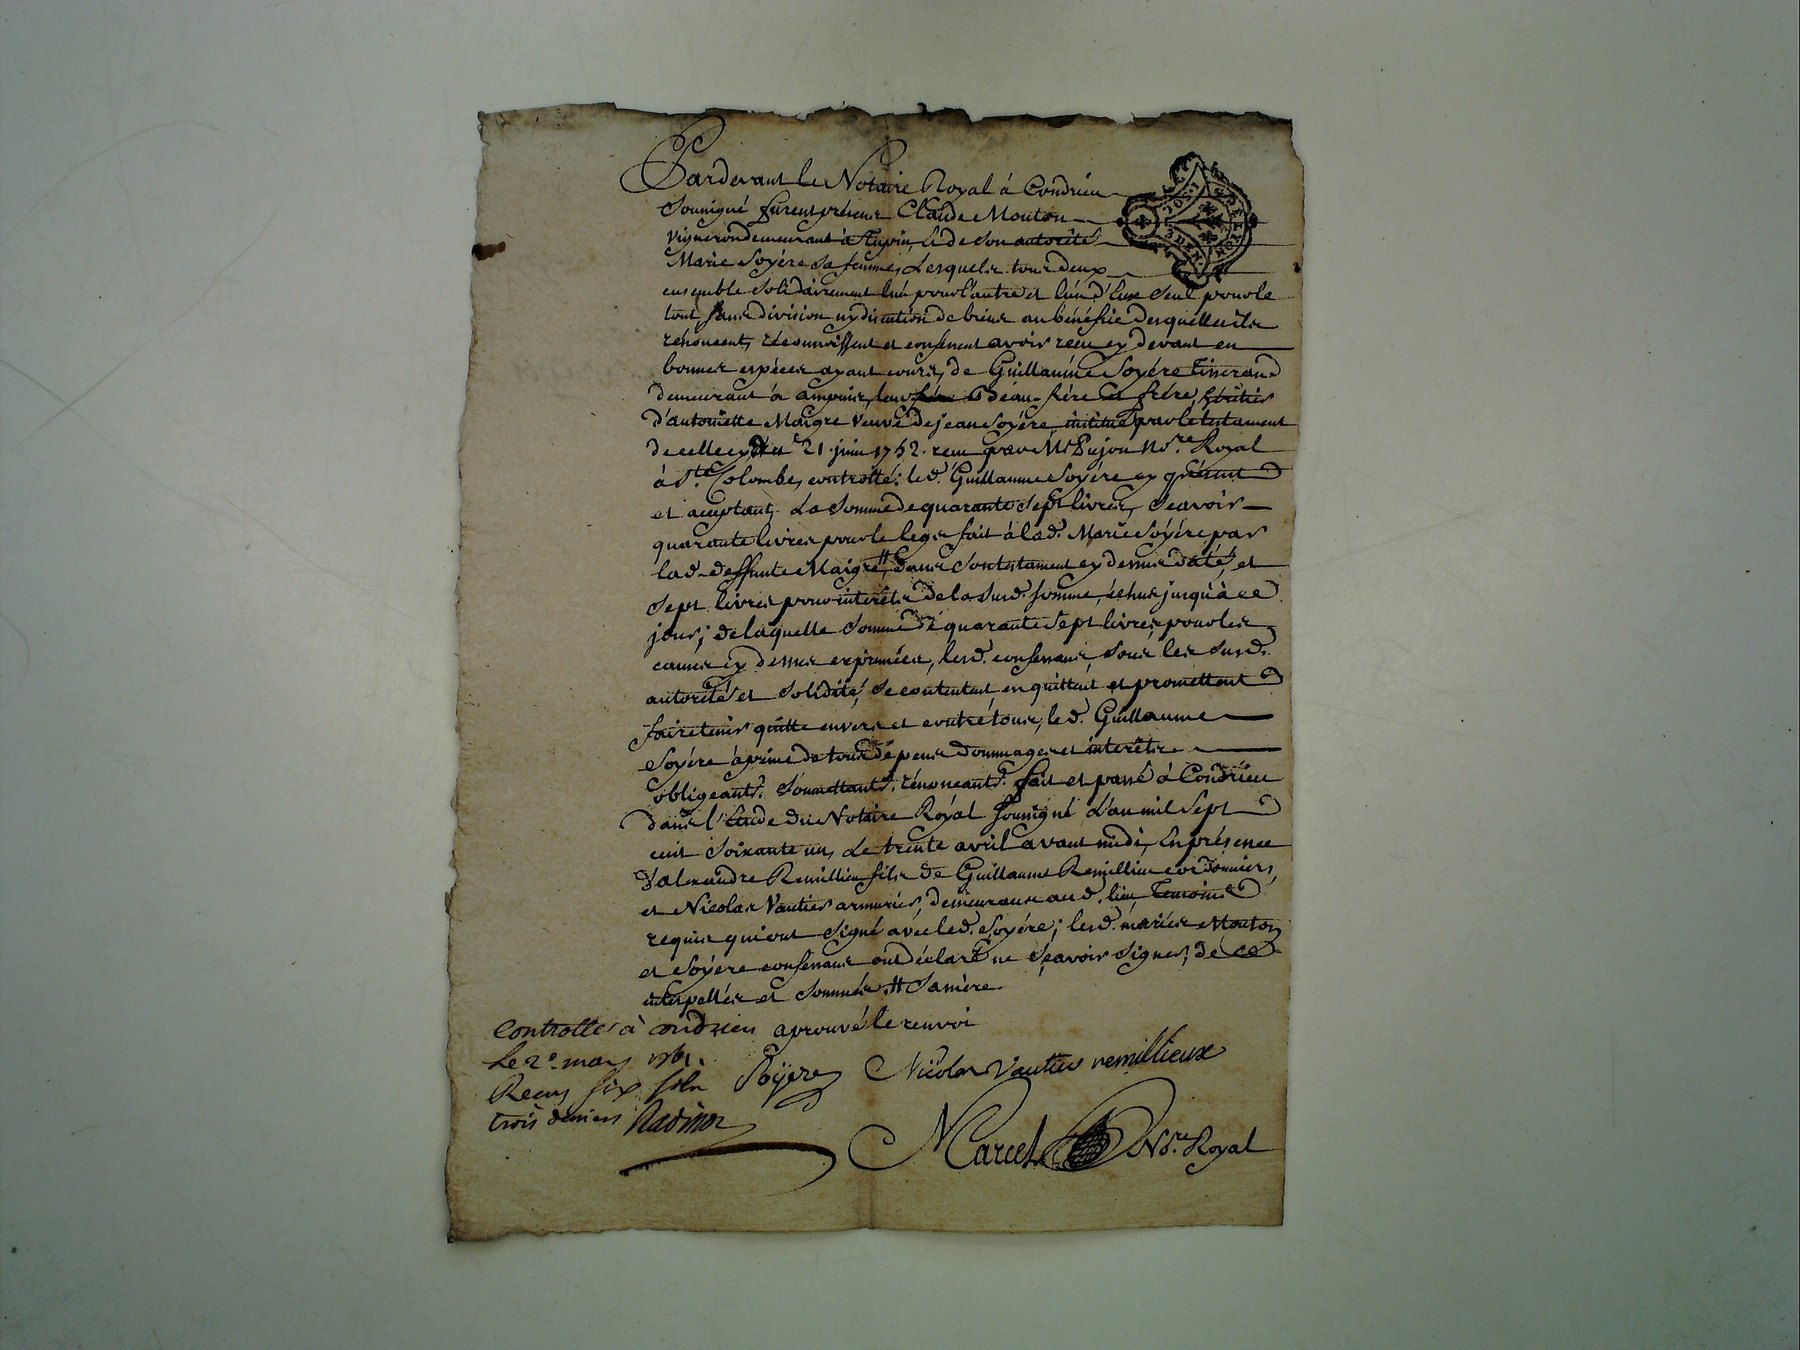 Pardevant le Notaire Royal à Condrieu
soussigné furent présens Claude Mouton
vigneron demeurant à Tupin, & de son autorité
Marie Soyére sa femme, Lesquels tous deux
ensemble solidairement l'un pour l'autre et l'un d'eux seul pour le
tout sans division ny discution de biens au bénéfice desquelles ils
rénoncent, réconnoissent et confessent avoir reçu cy devant en
bonnes espéces ayant cours, de Guillaume Soyére tisserand
demeurant à ampuis, leur Beau-frére et frére, héritier
d'antoinette Maigre veuve de jean Soyére institué par le testament
de celle cy du 21. juin 1752. reçu par Me Pujon Nore. Royal
à Ste. Colombe, controllé: led. Guillaume Soyére cy présent
et acceptant. La somme de quarante sept livres, sçavoir
quarante livres pour le legs fait à lad. Marie Soyére, par
lad. deffunte Maigre # dans son testament cy dessus daté, et
sept livres pour intérêts de la susd. somme, échus jusqu'à ce
jour; de laquelle somme de quarante sept livres, pour les
causes cy dessus exprimées, lesd. confessans, sous les susd.
autorité et solidité, se contentent en quittent et promettent
faire tenir quitte envers et contre tous, led. Guillaume
Soyére à peine de tous dépens dommages et intérêts
obligeants. soumettants. rénonceants. fait et passé à Condrieu
dans l'Etude du Notaire Royal soussigné L'an mil sept
cent soixante un, Le trente avril avant midi, En présence
d'alexandre Remillieu fils de Guillaume Remillieu cordonnier,
et Nicolas Vautier armurier, demeurans aud. lieu, Temoins
requis qui ont signé avec led. Soyére; lesd. mariés Mouton
et Soyére confessans ont déclaré ne sçavoir signer, de ce
interpellés et sommés. # sa mère
aprouvé le renvoi
Controllé à condrieu
Le 2e. may 1761.
Reçu six sols
trois deniers
Soyere Nicolas Vautier remillieux
Marcel Nore. Royal